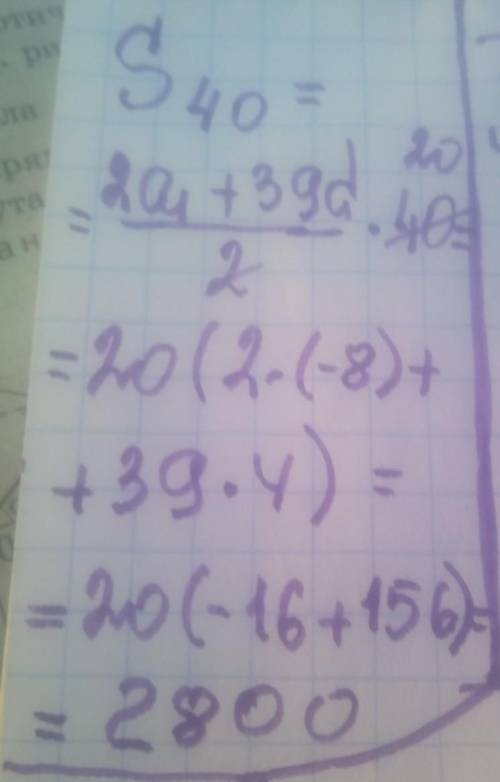 S₄₀ =
= (2a₁ + 39d)/2 · 40 = 20
= 20(2·(-8) +
+ 39·4) =
= 20(-16 + 156) =
= 2800